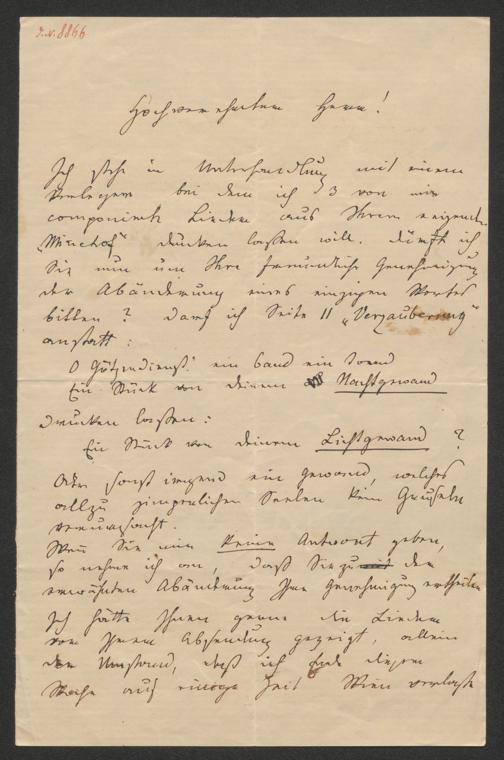 I.N. 8866
Hochverehrtem Herrn!
Ich stehe in Unterhandlung mit einem
Verleger bei dem ich 3 von mir
componirte Lieder aus Ihrem reizenden
drucken lassen will. Dürfte ich
Sie nun um Ihre freundliche Genehmigung
der Abänderung eines einzigen Wortes
bitten? Darf ich Seite 11 „Verzauberung"
anstatt:
O Götzendienst! ein Band ein Tand
Ein Stück von deinem Nachtgewand
drucken lassen:
Ein Stück von deinem Lichtgewand ?
Oder sonst irgend ein Gewand, welches
allzu zimperlichen Seelen kein Gruseln
verursacht.
Wenn Sie mir keine Antwort geben,
so nehme ich an, daß Sie zu der
erwähnten Abänderung Ihre Genehmigung ertheilen
Ich hätte Ihnen gerne die Lieder
vor Ihrem Absendung gezeigt, allein
der Umstand, daß ich Ende dieser
Woche auf einige Zeit Wien verlasse